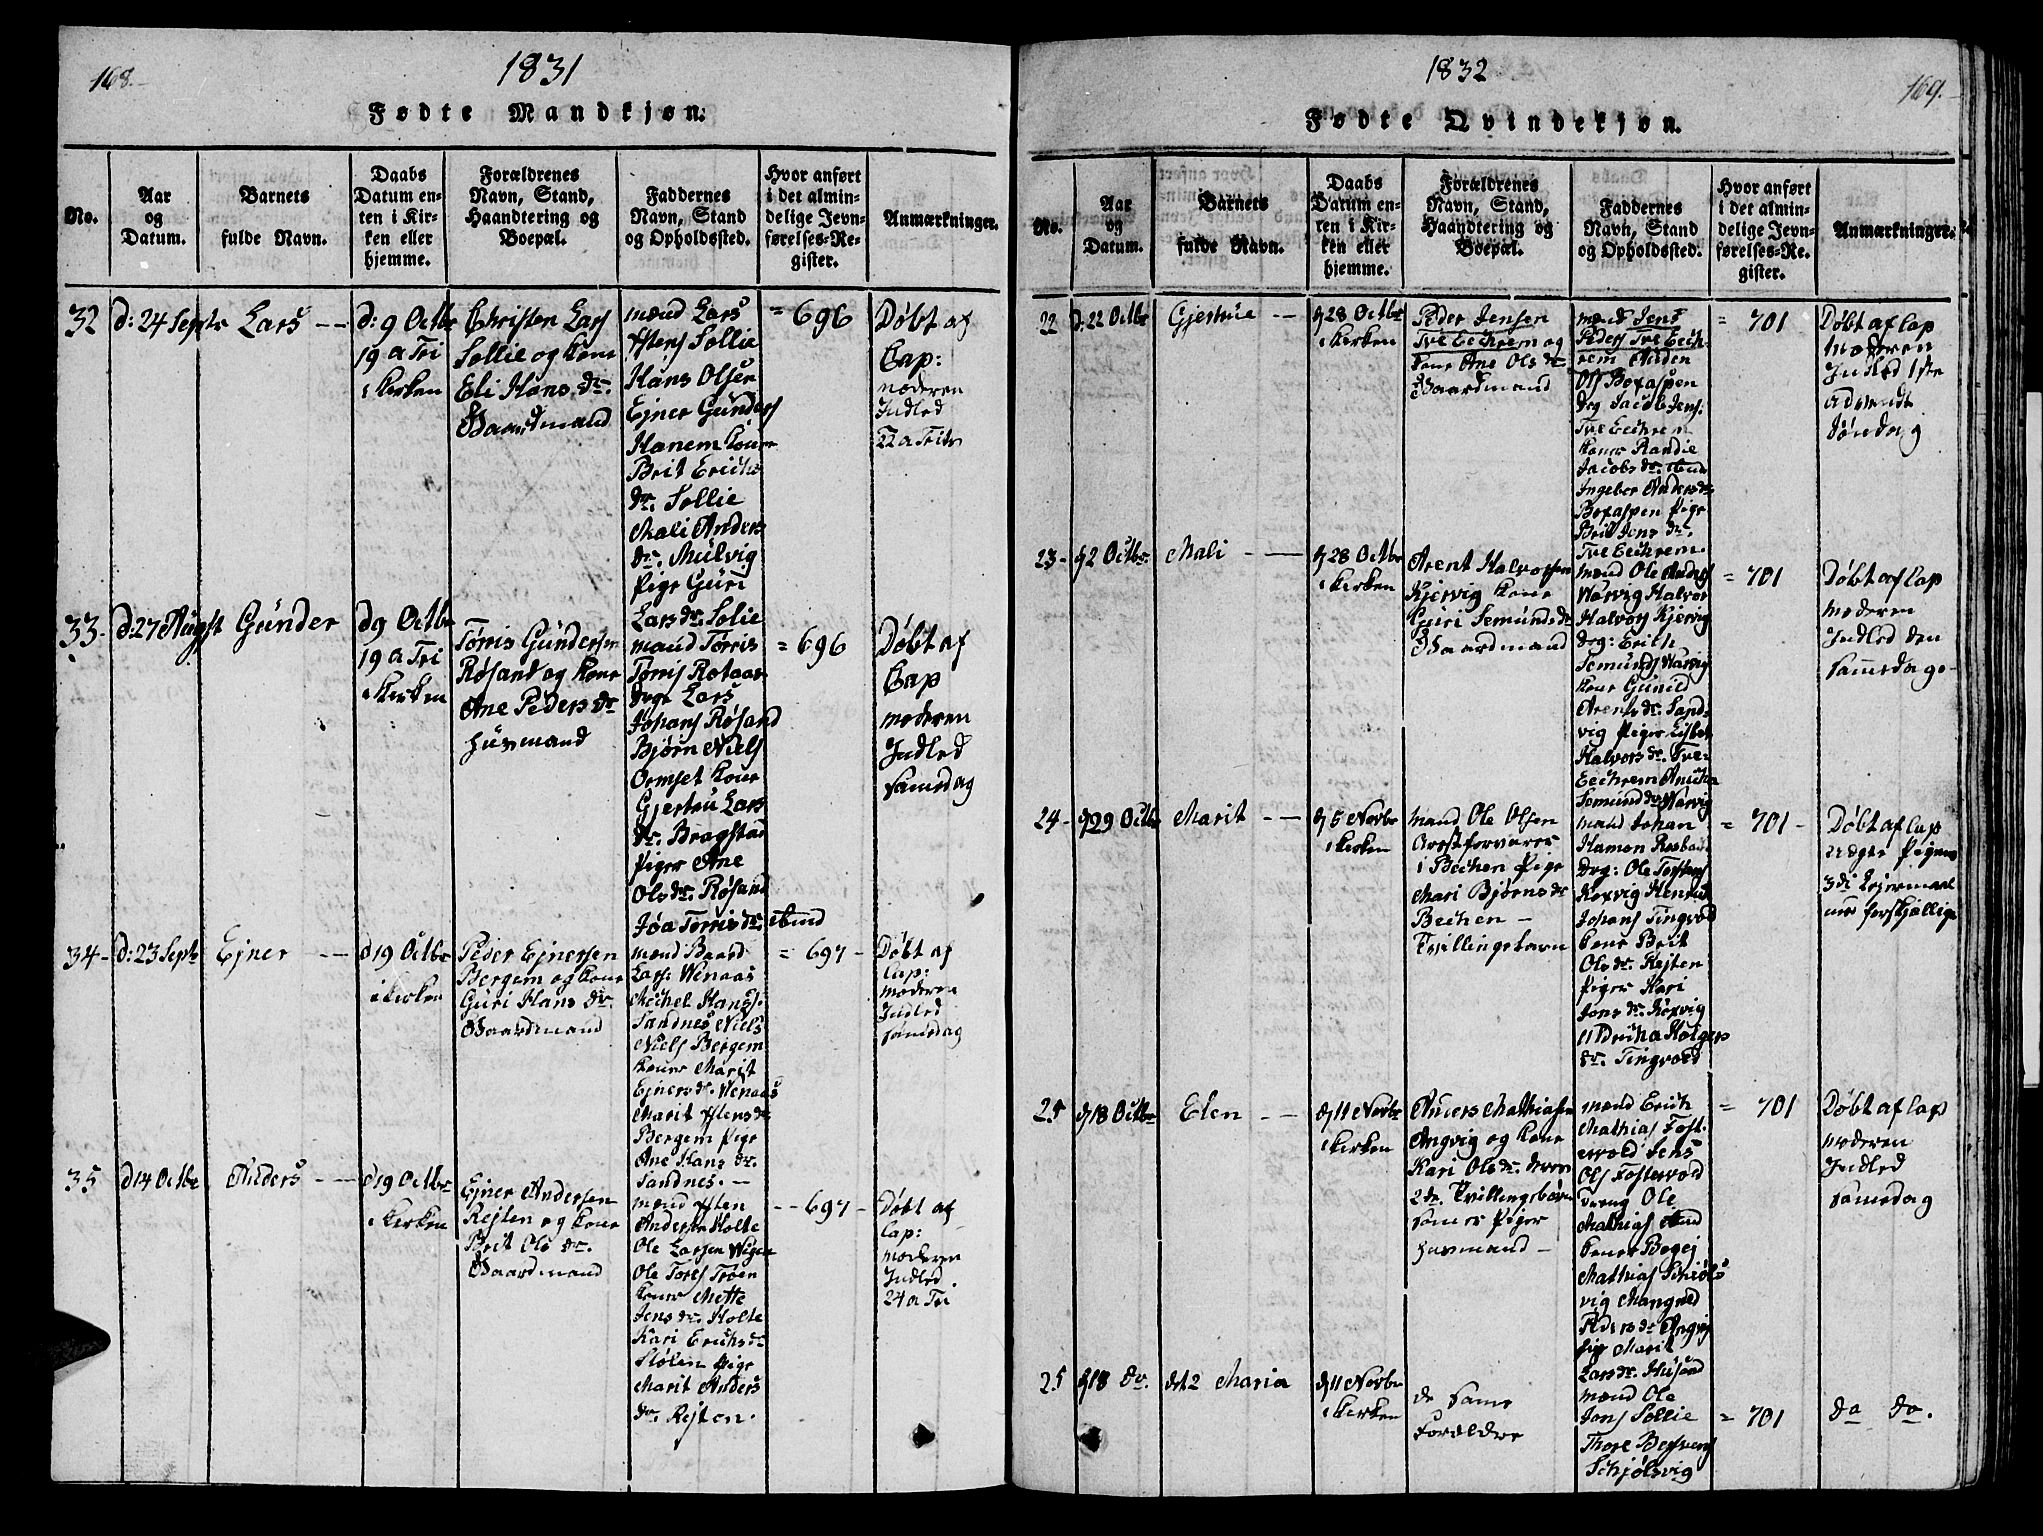 168.
1831
Fødte Mandkjøn.
No.
Aar
og
Datum.
Barnets
fulde Navn.
Daabs
Datum en-
ten i Kir-
ken eller
hjemme.
Forældrenes
Navn, Stand,
Haandtering og
Boepæl.
Faddernes
Navn, Stand
og Opholdssted.
Hvor anført
i det almin-
delige Jevn-
førelses-Re-
gister.
Anmærkninger.
32
d: 24 Septr
Lars
d: 9 Octbr
19 a Tri
i Kirken
Christen Lars
Sollie og Kone
Eli Hans dr.
Gaardmand
mænd Lars
Sollie
Hans Olsen
Ejner Gunders
Hanem Koner
Brit Erichs
dr. Sollie
Mali Anders
dr. Mulvig
Pige Guri
Lars dr. Solie
= 696
Døbt af
Cap:
moderen
Indled
22 a Trits
33
d: 27 August
Gunder
d 9 Octbr
19 a Tri
i Kirken
Torris Gundersen
Røsand og Kone
Ane Peders dr
Husmand
mænd Torris
Torris Rotaas
Drge Lars
Johans Røsand
Bjørn Niels
Ormset Koner
Gjertru Lars
dr. Bragstad
Piger Ane
Ols dr. Røsand
Joa Torris dr.
= 696
Døbt af
Cap
moderen
Indled
samedag
34
d: 23 Septr
Ejner
d 19 Octbr
i Kirken
Peder Ejnersen
Bergem og Kone
Guri Hans dr.
Gaardmand
mænd Baard
Lars: Wenaas
Michel Hans:
Sandnes Niels
Niels Bergem
Koner Marit
Ejners dr. Wenaas
Marit Istens dr
Bergem Pige
Ane Hans dr.
Sandnes.
= 697
Døbt af
Cap:
moderen
Indled
samedag
35
d 14 Octbr
Anders
d 19 Octbr
i Kirken
Ejner Andersen
Rejten og Kone
Brit Ols dr.
Gaardmand
mænd Isten
Anders Holte
Ole Larsen
Ole Tores Trøen
Koner Mette
Jens dr. Holte
Kari Erichs dr
Stølen Pige
Marit Anders
dr. Rejten.
697
Døbt af
Cap:
moderen
Indled.
24 a Tri
169.
1832
Fødte Qvindekjøn.
No.
Aar
og
Datum.
Barnets
fulde Navn.
Daabs
Datum en-
ten i Kir-
ken eller
hjemme.
Forældrenes
Navn, Stand,
Haandtering og
Boepæl.
Faddernes
Navn, Stand
og Opholdssted.
Hvor anført
i det almin-
delige Jevn-
førelses-Re-
gister.
Anmærkninger.
22
d: 22 Octbr
d 28 Octbr
i Kirken
Peder Jensen
Tve Eechrem og
Kone Ane Ols dr
Gaardmand
mænd Jens
Peders Tve Eech-
rem Anden
Ols Boxaspen
Drg Jacob Jens:
Tve Eechrem
Koner Randie
Jacobs dr.
Ingeber Anders dr
Boxaspen Pige
Brit Jens dr.
Tve Eechrem.
= 701
Døbt af Cap
Moderen
Indled 1ste
Advendt
Søndag
23
d 2 Octbr.
Mali
d 28 Octbr
i Kirken
Arent Halvorsen
Kjervig Kone
Guri Semunds dr
Gaardmand
mænd Ole Anders
Warvig Halvor
Halvors Kjervig
Drg: Erich
Semunds Warvig
Kone Gunild
Arents dr. Sand-
vig Piger Lisbet
Halvors dr. Tve-
Eechrem Anicha
Semunds dr Warvig
= 701
Døbt af Cap
moderen
Indled den
samedag
24
d 29 Octbr
Marit
d 5 Novbr
i Kirken
mand Ole Olsen
Arestforvarer
i Bechen Pige
Mari Bjørns dr
Bechen
Tvillingebarn
mænd Johan
Drg: Ole Torstens
Johans Tingvold
Kone Brit
Ols dr. Rejten
Piger Kari
Jons dr.
dr. Tingvold
= 701
Døbt af Cap
uægte Pigens
3di Leiermaal
25
d 18 Octbr
Elen
d 11 Novbr
i Kirken
Anders Mathiasen
Angvig og Kone
Kari Ols dr. deres
2de Tvillingebørn
Piger
Husmand
mænd Erich
Mathias Fost-
ervold Jens
Ols Fostervold
Dreng Ole
Mathias
Koner
Mathias Schjøls
vig Mangned
Peders dr Angvig
Pige Marit
Lars dr. Husand
= 701
Døbt af Cap
moderen
Indled
samedag
25
d 18 do.
det 2 Maria
d 11 Novbr
i Kirken
de Same
Forældre
mænd Ole
Jons Sollie
Thore
Schjølsvig
= 701
do do.